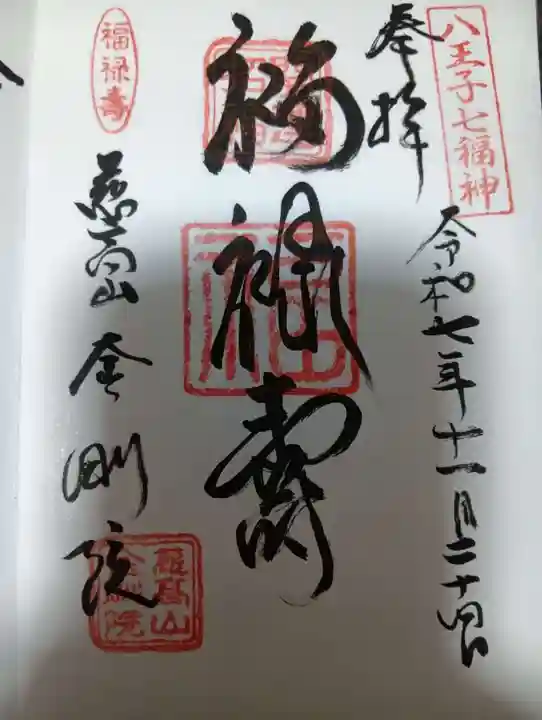 八王子七福神
奉拝
令和七年十一月二十四日
福禄寿
福禄壽
慈高山 金剛院
慈高山
金剛院